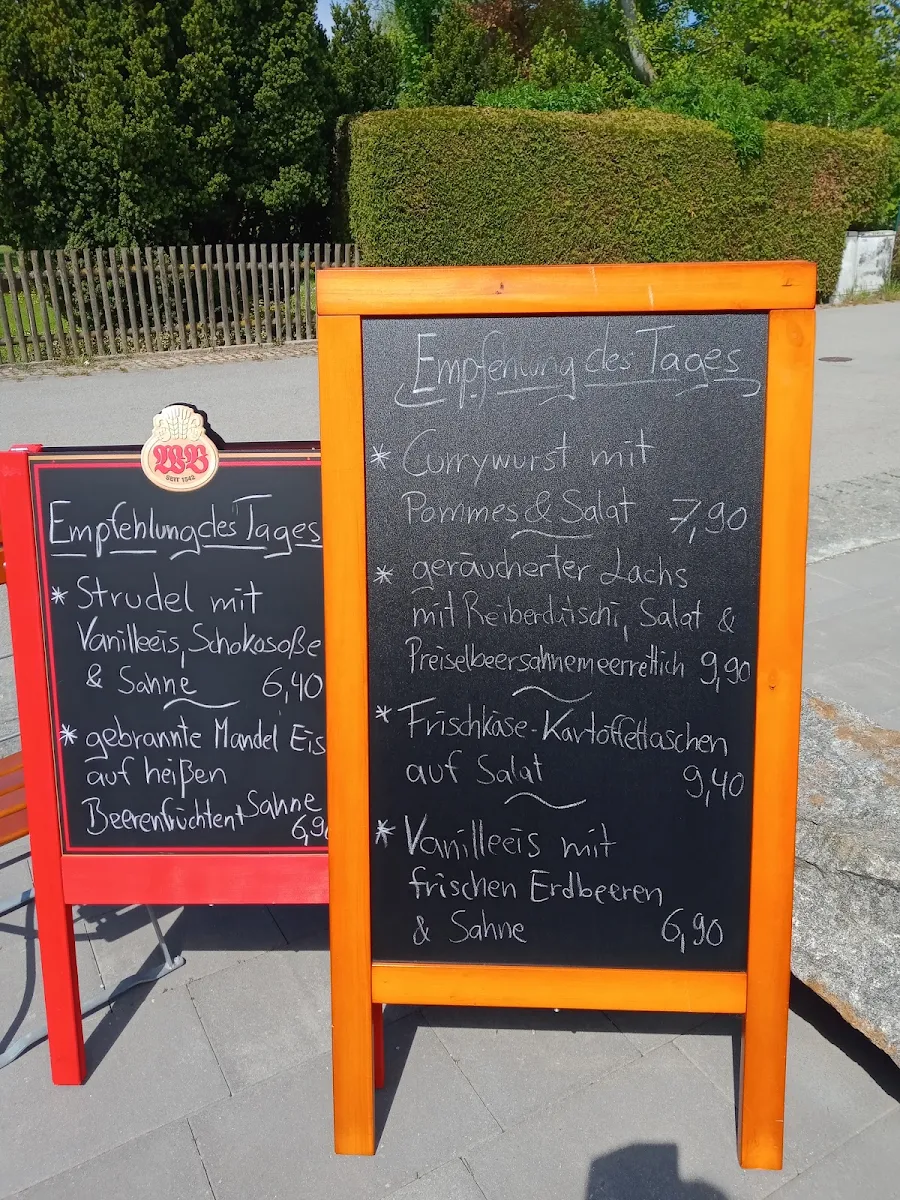 WB
SEIT 1842
Empfehlung des Tages
* Strudel mit
Vanilleeis, Schokosoße
& Sahne 6,40
* gebrannte Mandel Eis
auf heißen
Beerenfrüchten + Sahne
6,90
Empfehlung des Tages
* Currywurst mit
Pommes & Salat 7,90
* geräucherter Lachs
mit Reiberdatschi, Salat &
Preiselbeersahnemeerrettich 9,90
* Frischkäse-Kartoffeltaschen
auf Salat 9,40
* Vanilleeis mit
frischen Erdbeeren
& Sahne 6,90